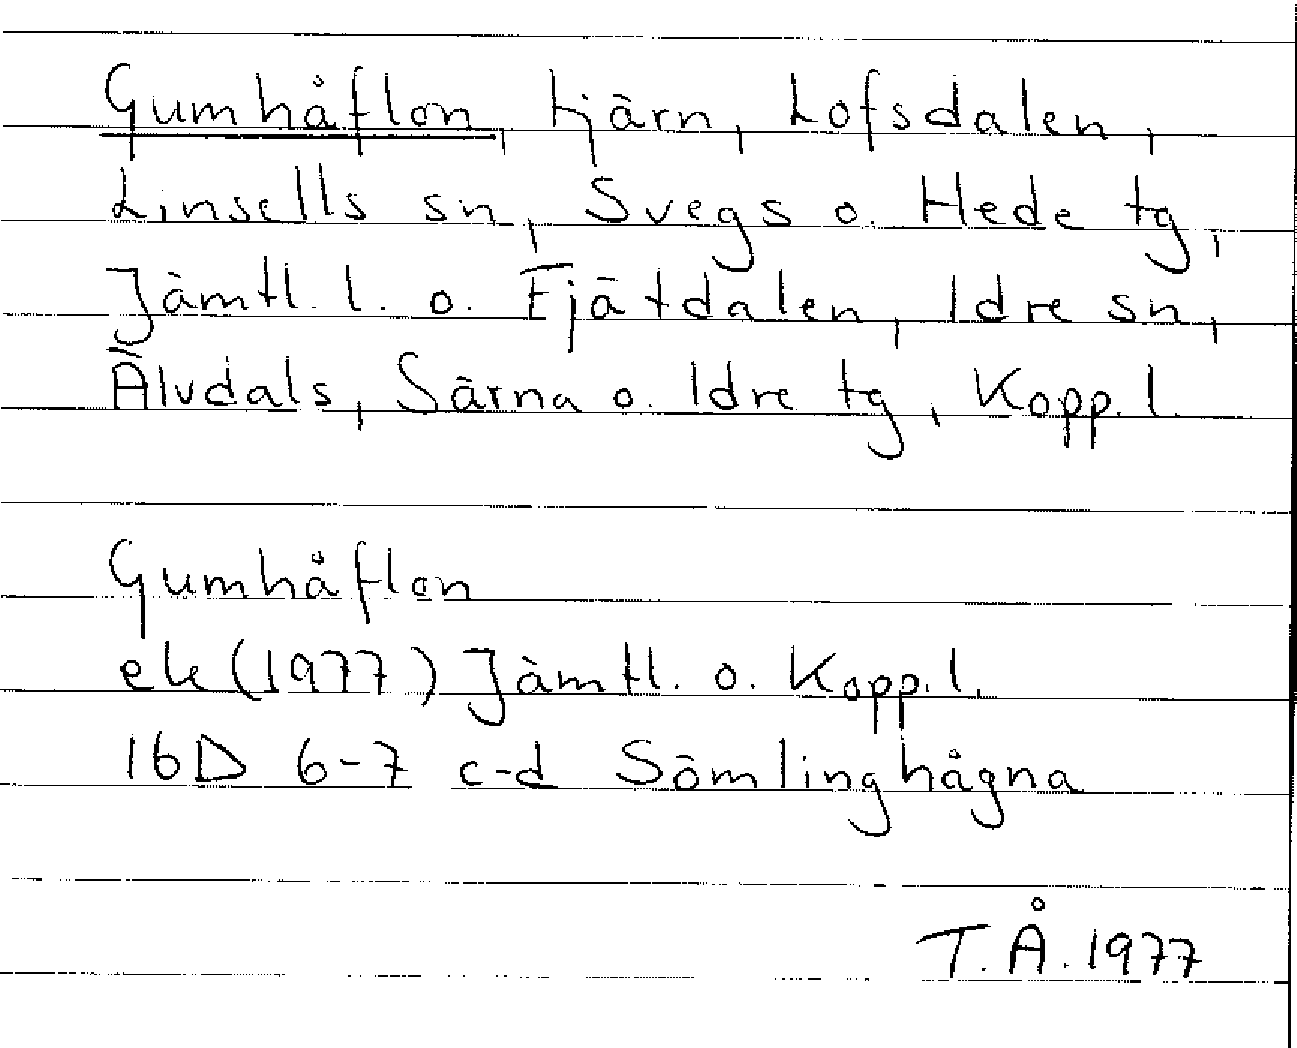 Gumhåflon, tjärn, Lofsdalen,
Linsells sn, Svegs o. Hede tg,
Jämtl. l. o. Fjätdalen, Idre sn,
Älvdals, Särna o. Idre tg, Kopp. l.
Gumhåflon
ek (1977) Jämtl. o. Kopp. l.
16D 6-7 c-d Sömlinghågna
T.Å. 1977